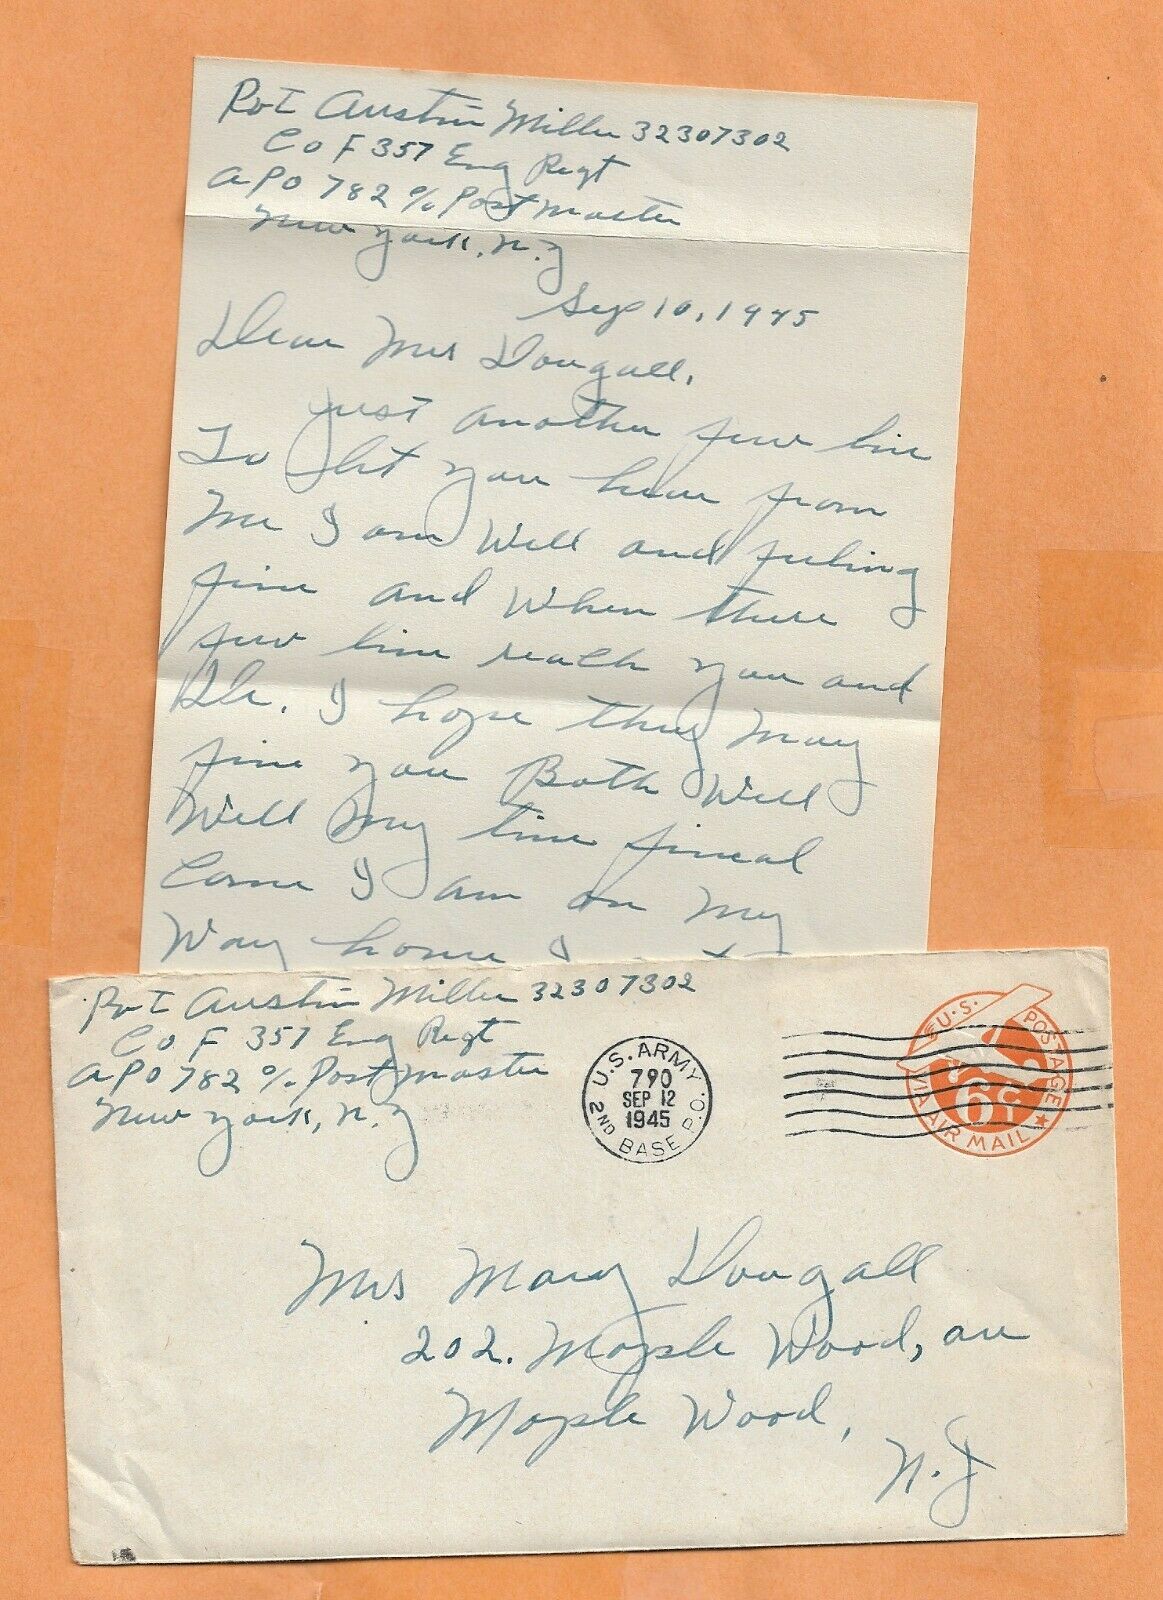 Pvt Austin Miller 32307302
Co F 357 Eng Regt
APO 782 % Post Master
New York, N.Y
Sep 10, 1945
Dear Mrs Dougall,
Just another few line
To let you hear from
Me I am Well and feeling
fine and When these
few line reach you and
I hope they May
fine you Both Well
Well My time fineal
Come I am on My
Way home I
Pvt Austin Miller 32307302
Co F 357 Eng Regt
APO 782 % Post Master
New York, N.Y
U.S. ARMY
790
SEP 12
1945
2ND BASE P.O.
U.S. POSTAGE
6¢
VIA AIR MAIL
Mrs Mary Dougall
202. Maple Wood, av
Maple Wood,
N.J